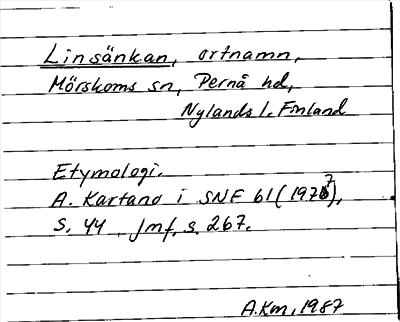 Linsänkan, ortnamn,
Mörskoms sn, Pernå hd,
Nylands l. Finland
Etymologi.
A. Kartano i SNF 61 (1977),
s. 44. Jmf. s. 267.
A.Km, 1987